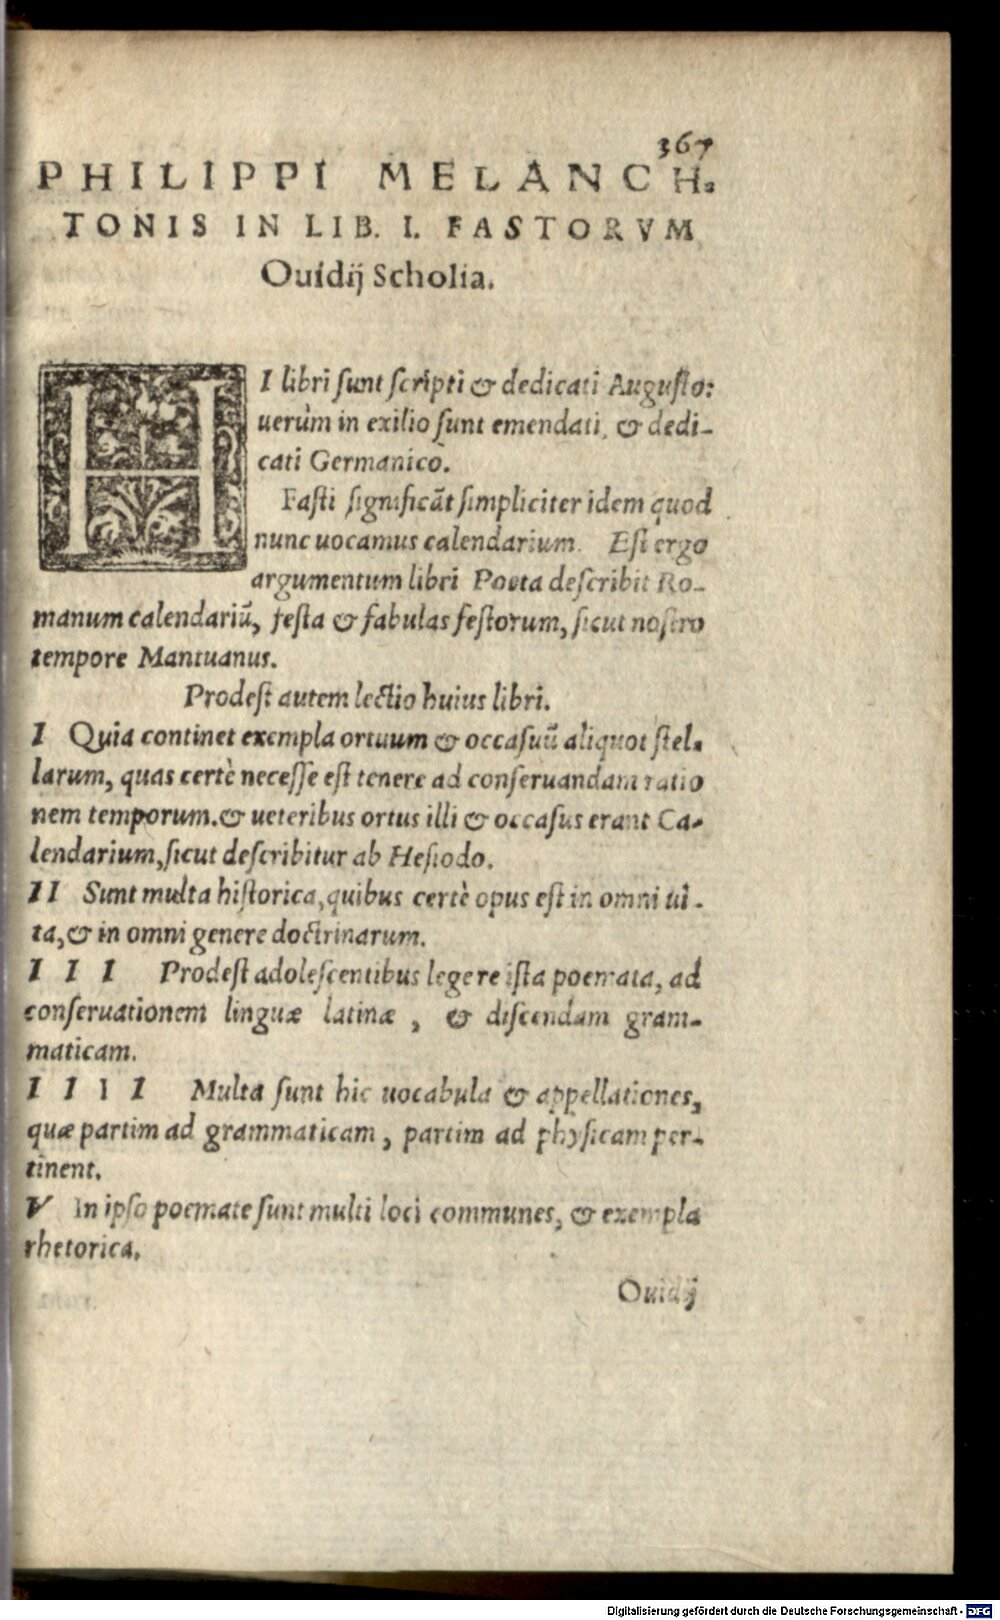 367
PHILIPPI MELANCH-
TONIS IN LIB. I. FASTORVM
Ouidij Scholia.
HI libri sunt scripti & dedicati Augusto:
uerùm in exilio sunt emendati, & dedi-
cati Germanico.
Fasti significāt simpliciter idem quod
nunc uocamus calendarium. Est ergo
argumentum libri Poeta describit Ro-
manum calendariū, festa & fabulas festorum, sicut nostro
tempore Mantuanus.
Prodest autem lectio huius libri.
I Quia continet exempla ortuum & occasuū aliquot stel-
larum, quas certè necesse est tenere ad conseruandam ratio
nem temporum. & ueteribus ortus illi & occasus erant Ca-
lendarium, sicut describitur ab Hesiodo.
II Sunt multa historica, quibus certè opus est in omni ui-
ta, & in omni genere doctrinarum.
III Prodest adolescentibus legere ista poemata, ad
conseruationem linguæ latinæ, & discendam gram-
maticam.
IIII Multa sunt hic uocabula & appellationes,
quæ partim ad grammaticam, partim ad physicam per-
tinent.
V In ipso poemate sunt multi loci communes, & exempla
rhetorica.
Ouidij
Digitalisierung gefördert durch die Deutsche Forschungsgemeinschaft - DFG